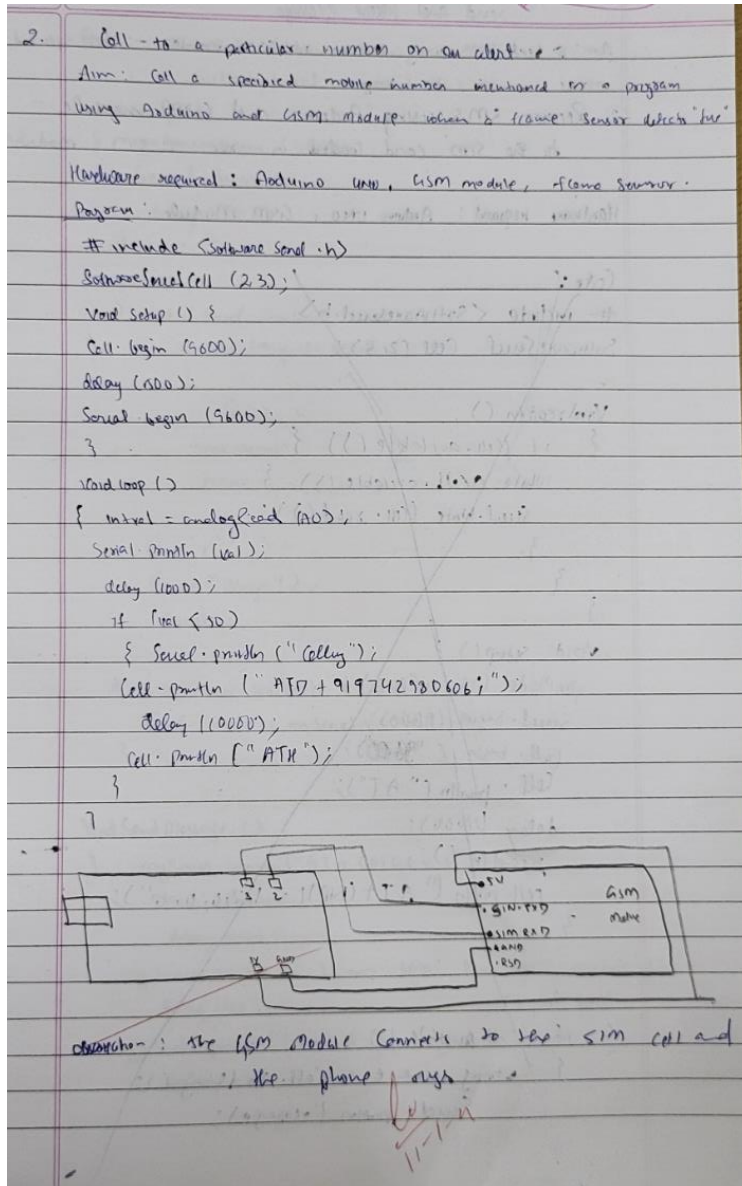 2. Call to a particular number on an alert :
Aim: Call a specified mobile number mentioned in a program
using Arduino and GSM Module when a flame sensor detects "fire"
Hardware required : Arduino UNO, GSM module, flame sensor.
Program :
# include <Software Serial .h>
SoftwareSerial Cell (2,3);
Void Setup () {
Cell. begin (9600);
delay (500);
Serial. begin (9600);
}
Void loop ()
{ int val = analogRead (A0);
Serial. println (val);
delay (1000);
if (val < 50)
{ Serial. println ("Calling");
Cell. println ("ATD + 919742980606;");
delay (10000);
Cell. println ("ATH");
}
}
3 2
5V
GSM
Module
SIM RXD
GND
5V GND
RSD
Observation : The GSM Module Connects to the SIM cell and
the phone rings